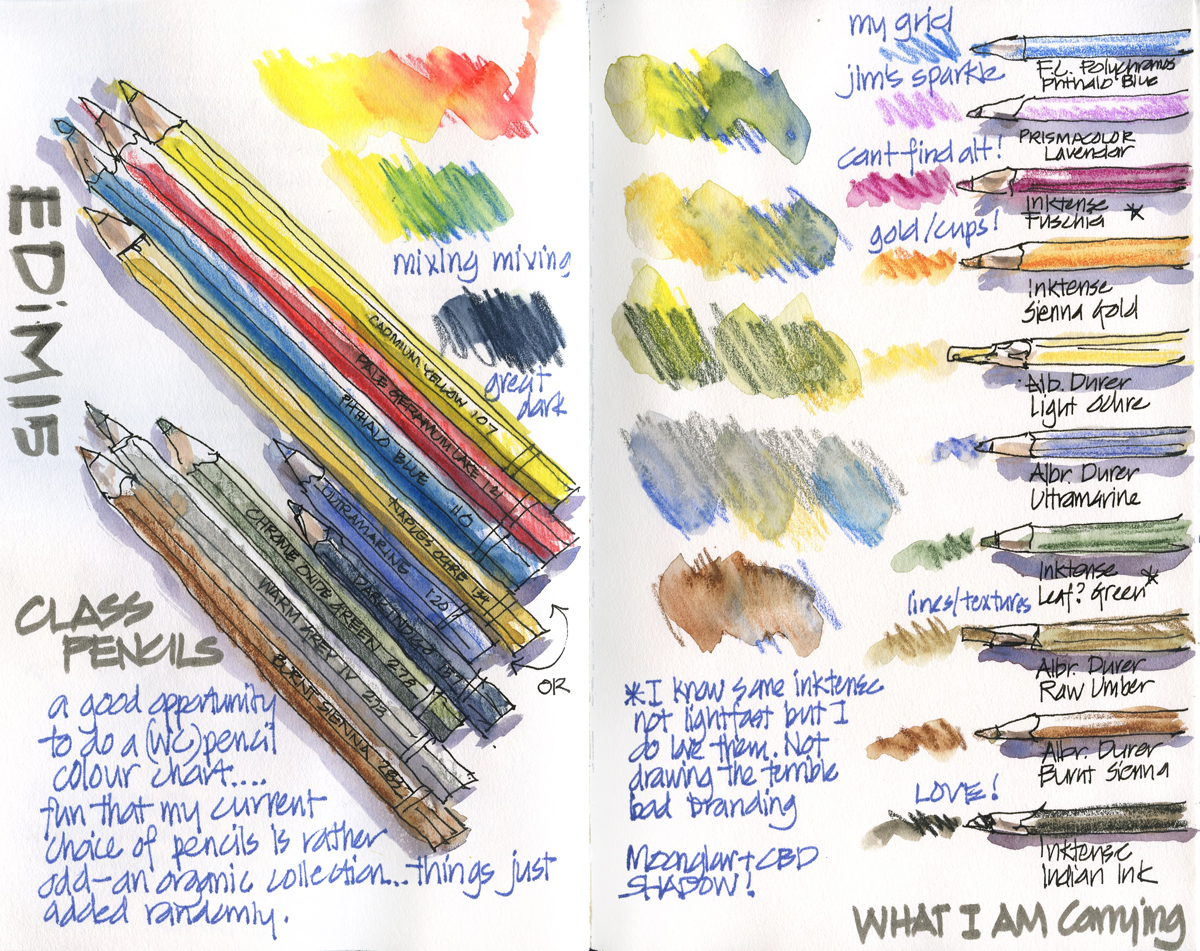 EDiM 15
mixing mixing
great
dark
CADMIUM YELLOW 107
PALE GERANIUM LAKE 121
PHTHALO BLUE 110
NAPLES OCRE 184
ULTRAMARINE 120
DARK INDIGO 157
CHROME OXIDE GREEN 278
WARM GREY IV 273
BURNT SIENNA 283
OR
CLASS
PENCILS
a good opportunity
to do a (WC) pencil
colour chart....
fun that my current
choice of pencils is rather
odd-an organic collection...things just
added randomly.
my grid
F.C. Polychromos
Phthalo Blue
jim's sparkle
PRISMACOLOR
Lavendar
cant find alt!
Inktense
Fuschia *
gold/cups!
Inktense
Sienna Gold
Alb. Durer
Light Ochre
Albr. Durer
Ultramarine
Inktense
Leaf? Green *
lines/textures
Albr. Durer
Raw Umber
Albr. Durer
Burnt Sienna
LOVE!
Inktense
Indian Ink
*I know some inktense
not lightfast but I
do love them. Not
drawing the terrible
bad branding
Moonglow + CBD
SHADOW!
WHAT I AM Carrying